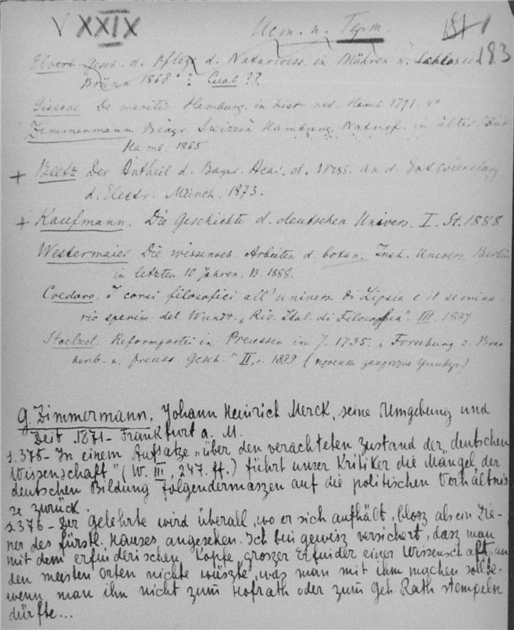 V XXIX
183
Elvert Gesch. d. Pflege d. Naturwiss. in Mähren u. Schlesien
Brünn 1868
Giseke De meritis Hamburg. in hist. nat. Hamb 1791.
Zimmermann Biogr. Skizzen Hamburg. Naturf. in älter. Zeit
Hamb. 1865
+ Beetz Der Antheil d. Bayer. Acad. d. Wiss. an d. Entwicklung
d. Electr. Münch. 1873.
+ Kaufmann. Die Geschichte d. deutschen Univers. I. St. 1888
Westermaier Die wissensch. Arbeiten d. botan. Inst. Univers. Berlin
in letzten 10 Jahren. B. 1888.
Credaro. I corsi filosofici all'univers. di Lipsia e il semina-
rio sperim. del Wundt. „Riv. Ital. di Filosofia". III.
Reformpartei in Preussen im J. 1795. „Forschung. z. Bran
denb. u. preuss. Gesch." II, 1. 1889
G. Zimmermann, Johann Heinrich Merck, seine Umgebung und
Zeit 1871 - Frankfurt a. M.
s. 375 - In einem Aufsatze „über den verachteten Zustand der deutschen
Wissenschaft" (W. III, 247. ff.) führt unser Kritiker die Mängel der
deutschen Bildung folgendermaszen auf die politischen Verhältnis
se zurück.
s. 376 - Der gelehrte wird überall, wo er sich aufhält, blosz als ein Zie-
rer des fürstl. Hauses angesehen. Ich bin gewisz versichert, dasz man
mit dem erfinderischen Kopfe groszer Erfinder einer Wissenschaft an
den meisten Orten nichte wüszte, was man mit ihm machen sollte
wenn man ihn nicht zum Hofrath oder zum geh. Rath stempeln
dürfte...